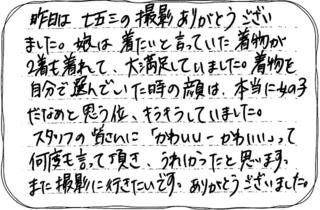 昨日は七五三の撮影ありがとうござい
ました。娘は着たいと言っていた着物が
2着も着れて、大満足していました。着物を
自分で選んでいた時の顔は、本当に女の子
だなぁと思う位、キラキラしていました。
スタッフの皆さんに「かわいいーかわいい」って
何度も言って頂き、うれしかったと思います。
また撮影に行きたいです。ありがとうございました。